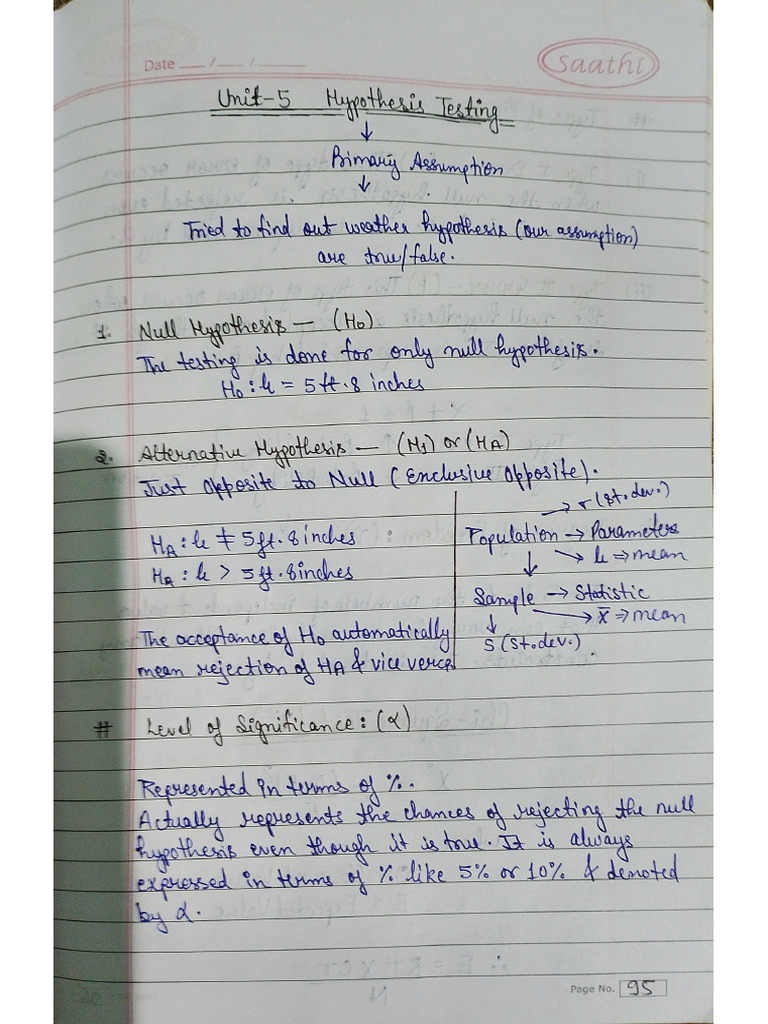 Saathi
Date __/__/__
Unit-5 Hypothesis Testing
↓
Bimary Assumption
↓
Tried to find out weather hypothesis (our assumption)
are true/false.
1. Null Hypothesis — (H₀)
The testing is done for only null hypothesis.
H₀ : μ = 5 ft. 8 inches
2. Alternative Hypothesis — (H₁) or (HA)
Just opposite to Null (Exclusive Opposite).
HA : μ ≠ 5 ft. 8 inches
HA : μ > 5 ft. 8 inches
The acceptance of H₀ automatically
mean rejection of HA & vice verca.
→ σ (St. dev.)
Population → Parameters
↓ → μ ⇒ mean
Sample → Statistic
↓ → x̄ ⇒ mean
S (St. dev.)
# Level of Significance : (α)
Represented in terms of %.
Actually represents the chances of rejecting the null
hypothesis even though it is true. It is always
expressed in terms of % like 5% or 10% & denoted
by α.
Page No. 95